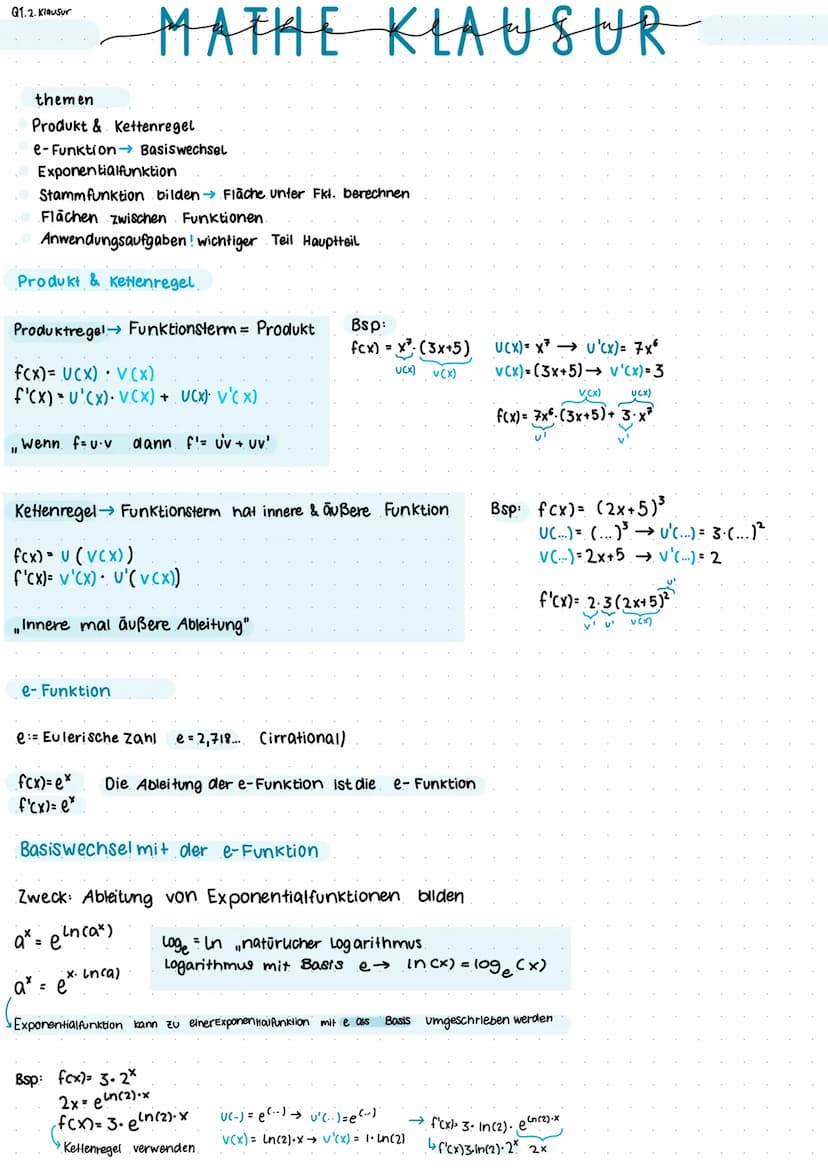 Q1.2.Klausur
MATHE KLAUSUR
mathe Klausur
themen
Produkt & Kettenregel
e-Funktion → Basiswechsel
Exponentialfunktion
Stammfunktion bilden → Fläche unter Fkt. berechnen
Flächen zwischen Funktionen
Anwendungsaufgaben! wichtiger Teil Hauptteil
Produkt & Kettenregel
Produktregel → Funktionsterm = Produkt
f(x) = u(x) · v(x)
f'(x) = u'(x) · v(x) + u(x) · v'(x)
„Wenn f=u·v dann f'= u'v + uv'
Bsp:
f(x) = x⁷ · (3x+5)
u(x) v(x)
u(x) = x⁷ → u'(x) = 7x⁶
v(x) = (3x+5) → v'(x) = 3
v(x) u(x)
f(x) = 7x⁶ · (3x+5) + 3 · x⁷
u' v'
Kettenregel → Funktionsterm hat innere & äußere Funktion
f(x) = u(v(x))
f'(x) = v'(x) · u'(v(x))
„Innere mal äußere Ableitung"
Bsp: f(x) = (2x+5)³
u(...) = (...)³ → u'(...) = 3·(...)²
v(...) = 2x+5 → v'(...) = 2
u'
f'(x) = 2·3(2x+5)²
v' u' v(x)
e-Funktion
e:= Eulerische Zahl e = 2,718... (irrational)
f(x) = eˣ Die Ableitung der e-Funktion ist die e-Funktion
f'(x) = eˣ
Basiswechsel mit der e-Funktion
Zweck: Ableitung von Exponentialfunktionen bilden
aˣ = e^ln(aˣ)
aˣ = e^x·ln(a)
logₑ = ln „natürlicher Logarithmus
Logarithmus mit Basis e → ln(x) = logₑ(x)
Exponentialfunktion kann zu einer Exponentialfunktion mit e als Basis umgeschrieben werden
Bsp: f(x) = 3·2ˣ
2x = e^ln(2)·x
f(x) = 3·e^ln(2)·x
Kettenregel verwenden
u(..) = e^(...) → u'(..) = e^(..)
v(x) = ln(2)·x → v'(x) = 1·ln(2)
→ f'(x) = 3·ln(2)·e^ln(2)·x
↳ f'(x)3·ln(2)·2ˣ 2x